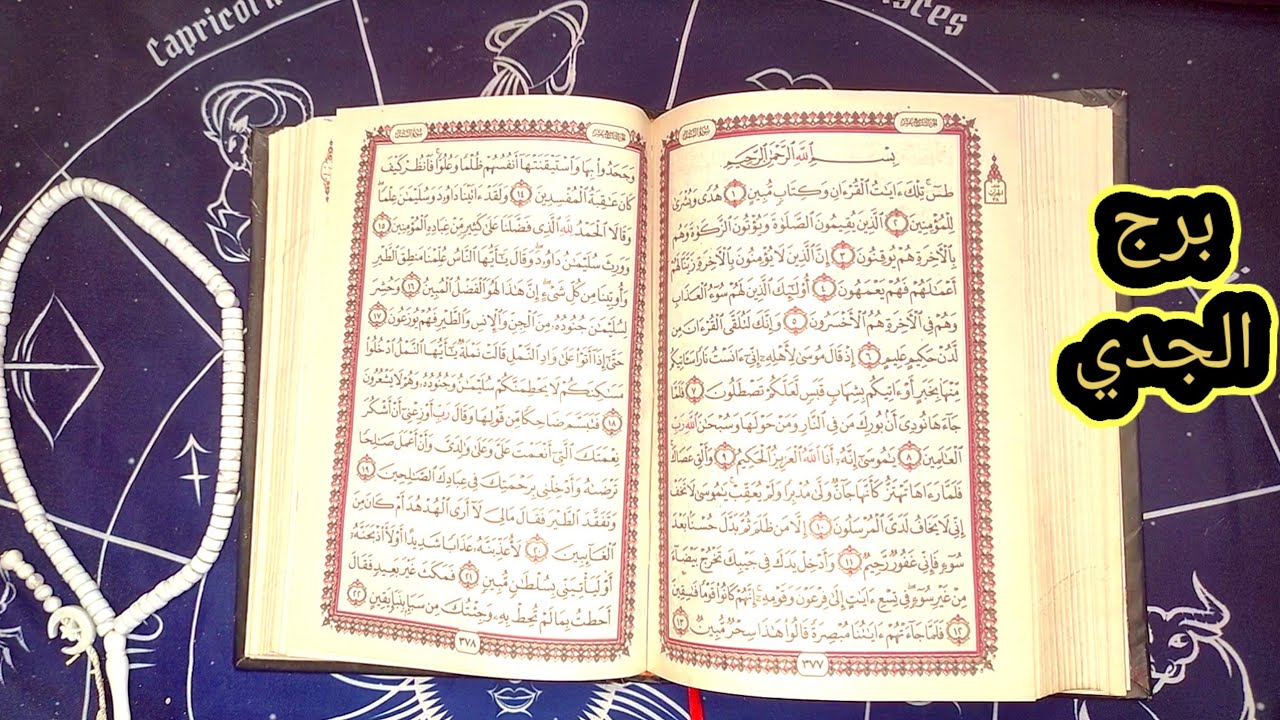 Capricorn
isces
برج
الجدي
سُورَةُ النَّمْلِ
بِسْمِ اللَّهِ الرَّحْمَٰنِ الرَّحِيمِ
طسٓ ۚ تِلْكَ ءَايَٰتُ الْقُرْءَانِ وَكِتَابٍ مُّبِينٍ ١ هُدًى وَبُشْرَىٰ
لِلْمُؤْمِنِينَ ٢ الَّذِينَ يُقِيمُونَ الصَّلَوٰةَ وَيُؤْتُونَ الزَّكَوٰةَ وَهُم
بِالْآخِرَةِ هُمْ يُوقِنُونَ ٣ إِنَّ الَّذِينَ لَا يُؤْمِنُونَ بِالْآخِرَةِ زَيَّنَّا لَهُمْ
أَعْمَٰلَهُمْ فَهُمْ يَعْمَهُونَ ٤ أُو۟لَٰٓئِكَ الَّذِينَ لَهُمْ سُوٓءُ الْعَذَابِ
وَهُمْ فِي الْآخِرَةِ هُمُ الْأَخْسَرُونَ ٥ وَإِنَّكَ لَتُلَقَّى الْقُرْءَانَ مِن
لَّدُنْ حَكِيمٍ عَلِيمٍ ٦ إِذْ قَالَ مُوسَىٰ لِأَهْلِهِۦٓ إِنِّيٓ ءَانَسْتُ نَارًا سَـَٔاتِيكُم
مِّنْهَا بِخَبَرٍ أَوْ ءَاتِيكُم بِشِهَابٍ قَبَسٍ لَّعَلَّكُمْ تَصْطَلُونَ ٧ فَلَمَّا
جَآءَهَا نُودِيَ أَنۢ بُورِكَ مَن فِي النَّارِ وَمَنْ حَوْلَهَا وَسُبْحَٰنَ اللَّهِ رَبِّ
الْعَالَمِينَ ٨ يَٰمُوسَىٰٓ إِنَّهُۥٓ أَنَا اللَّهُ الْعَزِيزُ الْحَكِيمُ ٩ وَأَلْقِ عَصَاكَ
فَلَمَّا رَءَاهَا تَهْتَزُّ كَأَنَّهَا جَآنٌّ وَلَّىٰ مُدْبِرًا وَلَمْ يُعَقِّبْ ۚ يَٰمُوسَىٰ لَا تَخَفْ
إِنِّي لَا يَخَافُ لَدَيَّ الْمُرْسَلُونَ ١٠ إِلَّا مَن ظَلَمَ ثُمَّ بَدَّلَ حُسْنًۢا بَعْدَ
سُوٓءٍ فَإِنِّي غَفُورٌ رَّحِيمٌ ١١ وَأَدْخِلْ يَدَكَ فِي جَيْبِكَ تَخْرُجْ بَيْضَآءَ
مِنْ غَيْرِ سُوٓءٍ ۖ فِي تِسْعِ ءَايَٰتٍ إِلَىٰ فِرْعَوْنَ وَقَوْمِهِۦٓ ۚ إِنَّهُمْ كَانُوا۟ قَوْمًا فَٰسِقِينَ
١٢ فَلَمَّا جَآءَتْهُمْ ءَايَٰتُنَا مُبْصِرَةً قَالُوا۟ هَٰذَا سِحْرٌ مُّبِينٌ ١٣
٣٧٧
سُورَةُ النَّمْلِ
وَجَحَدُوا۟ بِهَا وَاسْتَيْقَنَتْهَآ أَنفُسُهُمْ ظُلْمًا وَعُلُوًّا ۚ فَانظُرْ كَيْفَ
كَانَ عَٰقِبَةُ الْمُفْسِدِينَ ١٤ وَلَقَدْ ءَاتَيْنَا دَاوُۥدَ وَسُلَيْمَٰنَ عِلْمًا ۖ
وَقَالَا الْحَمْدُ لِلَّهِ الَّذِي فَضَّلَنَا عَلَىٰ كَثِيرٍ مِّنْ عِبَادِهِ الْمُؤْمِنِينَ ١٥
وَوَرِثَ سُلَيْمَٰنُ دَاوُۥدَ ۖ وَقَالَ يَٰٓأَيُّهَا النَّاسُ عُلِّمْنَا مَنطِقَ الطَّيْرِ
وَأُوتِينَا مِن كُلِّ شَيْءٍ ۖ إِنَّ هَٰذَا لَهُوَ الْفَضْلُ الْمُبِينُ ١٦ وَحُشِرَ
لِسُلَيْمَٰنَ جُنُودُهُۥ مِنَ الْجِنِّ وَالْإِنسِ وَالطَّيْرِ فَهُمْ يُوزَعُونَ ١٧
حَتَّىٰٓ إِذَآ أَتَوْا۟ عَلَىٰ وَادِ النَّمْلِ قَالَتْ نَمْلَةٌ يَٰٓأَيُّهَا النَّمْلُ ادْخُلُوا۟
مَسَٰكِنَكُمْ لَا يَحْطِمَنَّكُمْ سُلَيْمَٰنُ وَجُنُودُهُۥ وَهُمْ لَا يَشْعُرُونَ
١٨ فَتَبَسَّمَ ضَاحِكًا مِّن قَوْلِهَا وَقَالَ رَبِّ أَوْزِعْنِيٓ أَنْ أَشْكُرَ
نِعْمَتَكَ الَّتِيٓ أَنْعَمْتَ عَلَيَّ وَعَلَىٰ وَٰلِدَيَّ وَأَنْ أَعْمَلَ صَٰلِحًا
تَرْضَىٰهُ وَأَدْخِلْنِي بِرَحْمَتِكَ فِي عِبَادِكَ الصَّٰلِحِينَ ١٩
وَتَفَقَّدَ الطَّيْرَ فَقَالَ مَالِيَ لَآ أَرَى الْهُدْهُدَ أَمْ كَانَ مِنَ
الْغَآئِبِينَ ٢٠ لَأُعَذِّبَنَّهُۥ عَذَابًا شَدِيدًا أَوْ لَأَا۟ذْبَحَنَّهُۥٓ
أَوْ لَيَأْتِيَنِّي بِسُلْطَٰنٍ مُّبِينٍ ٢١ فَمَكَثَ غَيْرَ بَعِيدٍ فَقَالَ
أَحَطتُ بِمَا لَمْ تُحِطْ بِهِۦ وَجِئْتُكَ مِن سَبَإٍۭ بِنَبَإٍ يَقِينٍ ٢٢
٣٧٨